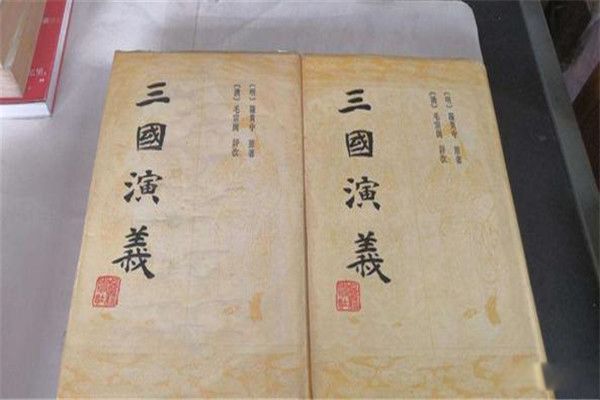 三國演義
〔明〕羅貫中 原著
〔清〕毛宗崗 評改
三國演義
〔明〕羅貫中 原著
〔清〕毛宗崗 評改